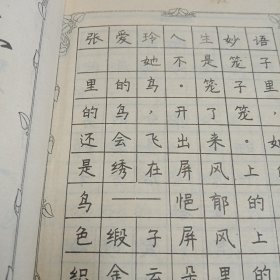 张爱玲人生妙语
她不是笼子
里的鸟。笼子里
的鸟，开了笼，
还会飞出来。她
是绣在屏风上的
鸟——悒郁的
色缎子屏风上
织金云朵里的